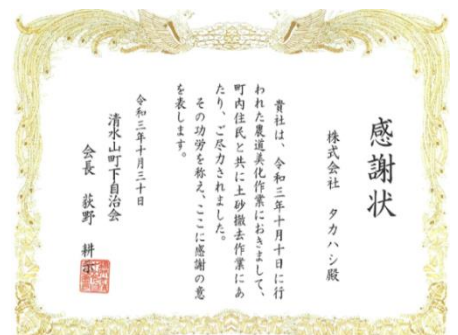 感謝状
株式会社 タカハシ殿
貴社は、令和三年十月十日に行
われた農道美化作業におきまして、
町内住民と共に土砂撤去作業にあ
たり、ご尽力されました。
その功労を称え、ここに感謝の意
を表します。
令和三年十月三十日
清水山町下自治会
会長 荻野 耕